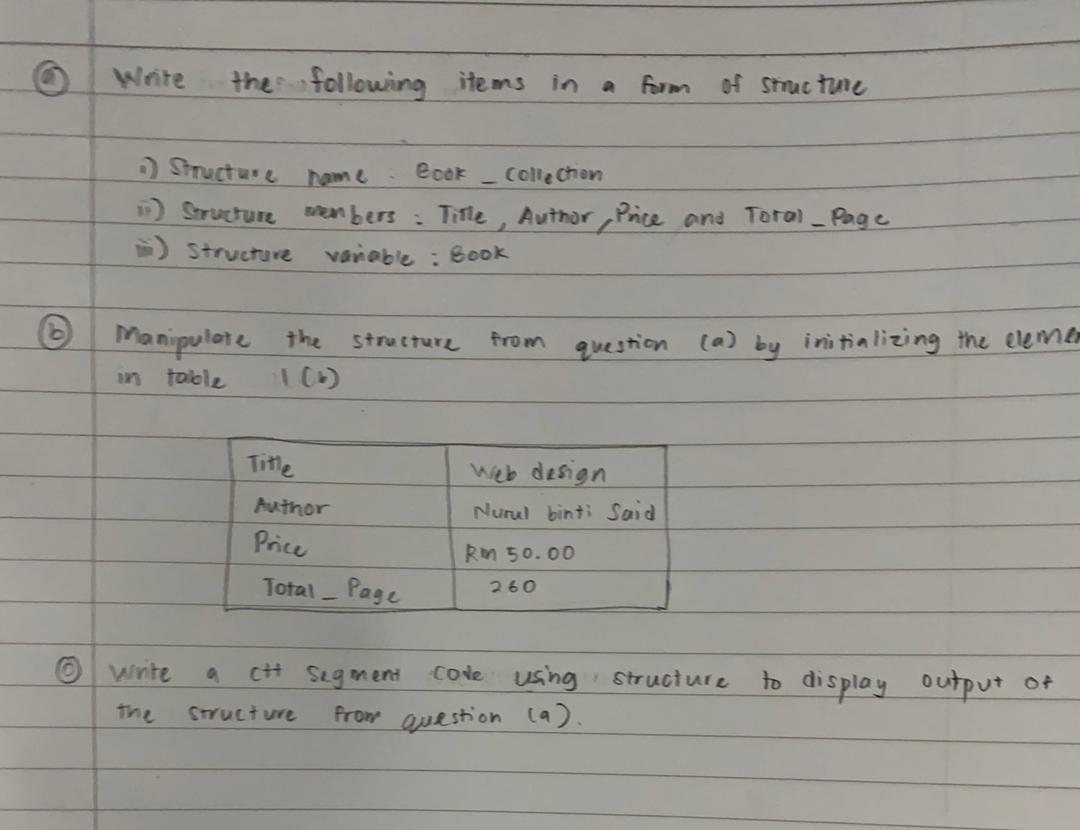 (a) Write the following items in a form of structure
i) Structure name : Book _ Collection
ii) Structure members : Title, Author, Price and Total _ Page
iii) Structure variable : Book
(b) Manipulate the structure from question (a) by initializing the elemen
in table 1 (b)
Title Web design
Author Nurul binti Said
Price RM 50.00
Total _ Page 260
(c) Write a C++ Segment code using structure to display output of
the structure from question (a).